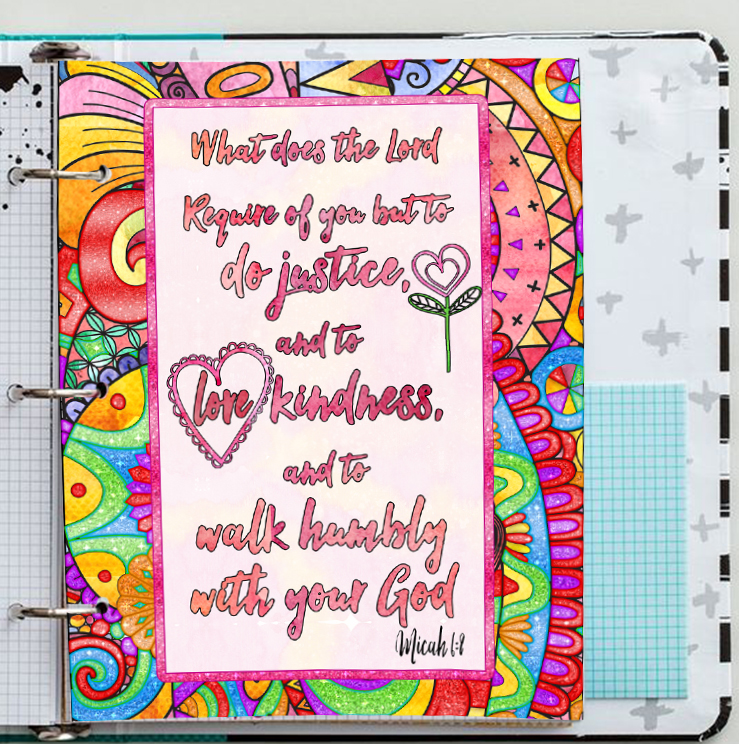 What does the Lord
Require of you but to
do justice,
and to
love kindness,
and to
walk humbly
with your God
Micah 6:8